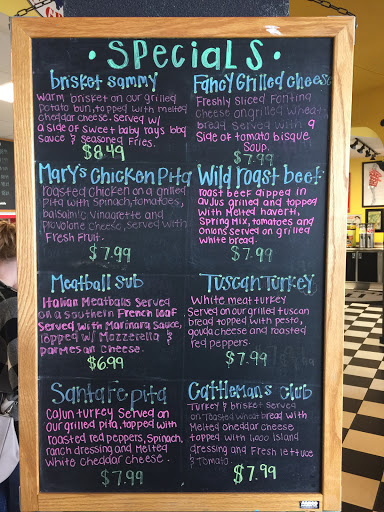 • SPecialS •
brisket sammy
warm brisket on our grilled
potato bun, topped with melted
cheddar cheese. served w/
a side of sweet baby rays bbq
sauce & seasoned Fries.
$8.49
Fancy Grilled cheese
Freshly Sliced Fontina
Cheese on grilled wheat
bread served with a
side of tomato bisque
soup.
$7.99
Mary's Chicken Pita
roasted chicken on a grilled
pita with spinach, tomatoes,
balsamic vinagrette and
provolone cheese, served with
Fresh Fruit.
$7.99
Wild roast beef
roast beef dipped in
aujus grilled and topped
with melted haverti,
Spring mix, tomatoes and
onions served on grilled
white bread.
$7.99
Meatball sub
Italian Meatballs Served
on a southern French loaf
Served with Marinara Sauce,
topped w/ Mozzerella &
parmesan cheese.
$6.99
Tuscan Turkey
White meat turkey
Served on our grilled tuscan
bread topped with pesto,
gouda cheese and roasted
red peppers.
$7.99
Santa Fe pita
Cajun turkey Served on
our grilled pita, topped with
roasted red peppers, Spinach,
ranch dressing and Melted
White cheddar cheese.
$7.99
Cattleman's club
Turkey & brisket served
on toasted wheat bread with
Melted cheddar cheese
topped with 1,000 Island
dressing and Fresh lettuce
& Tomato.
$7.99